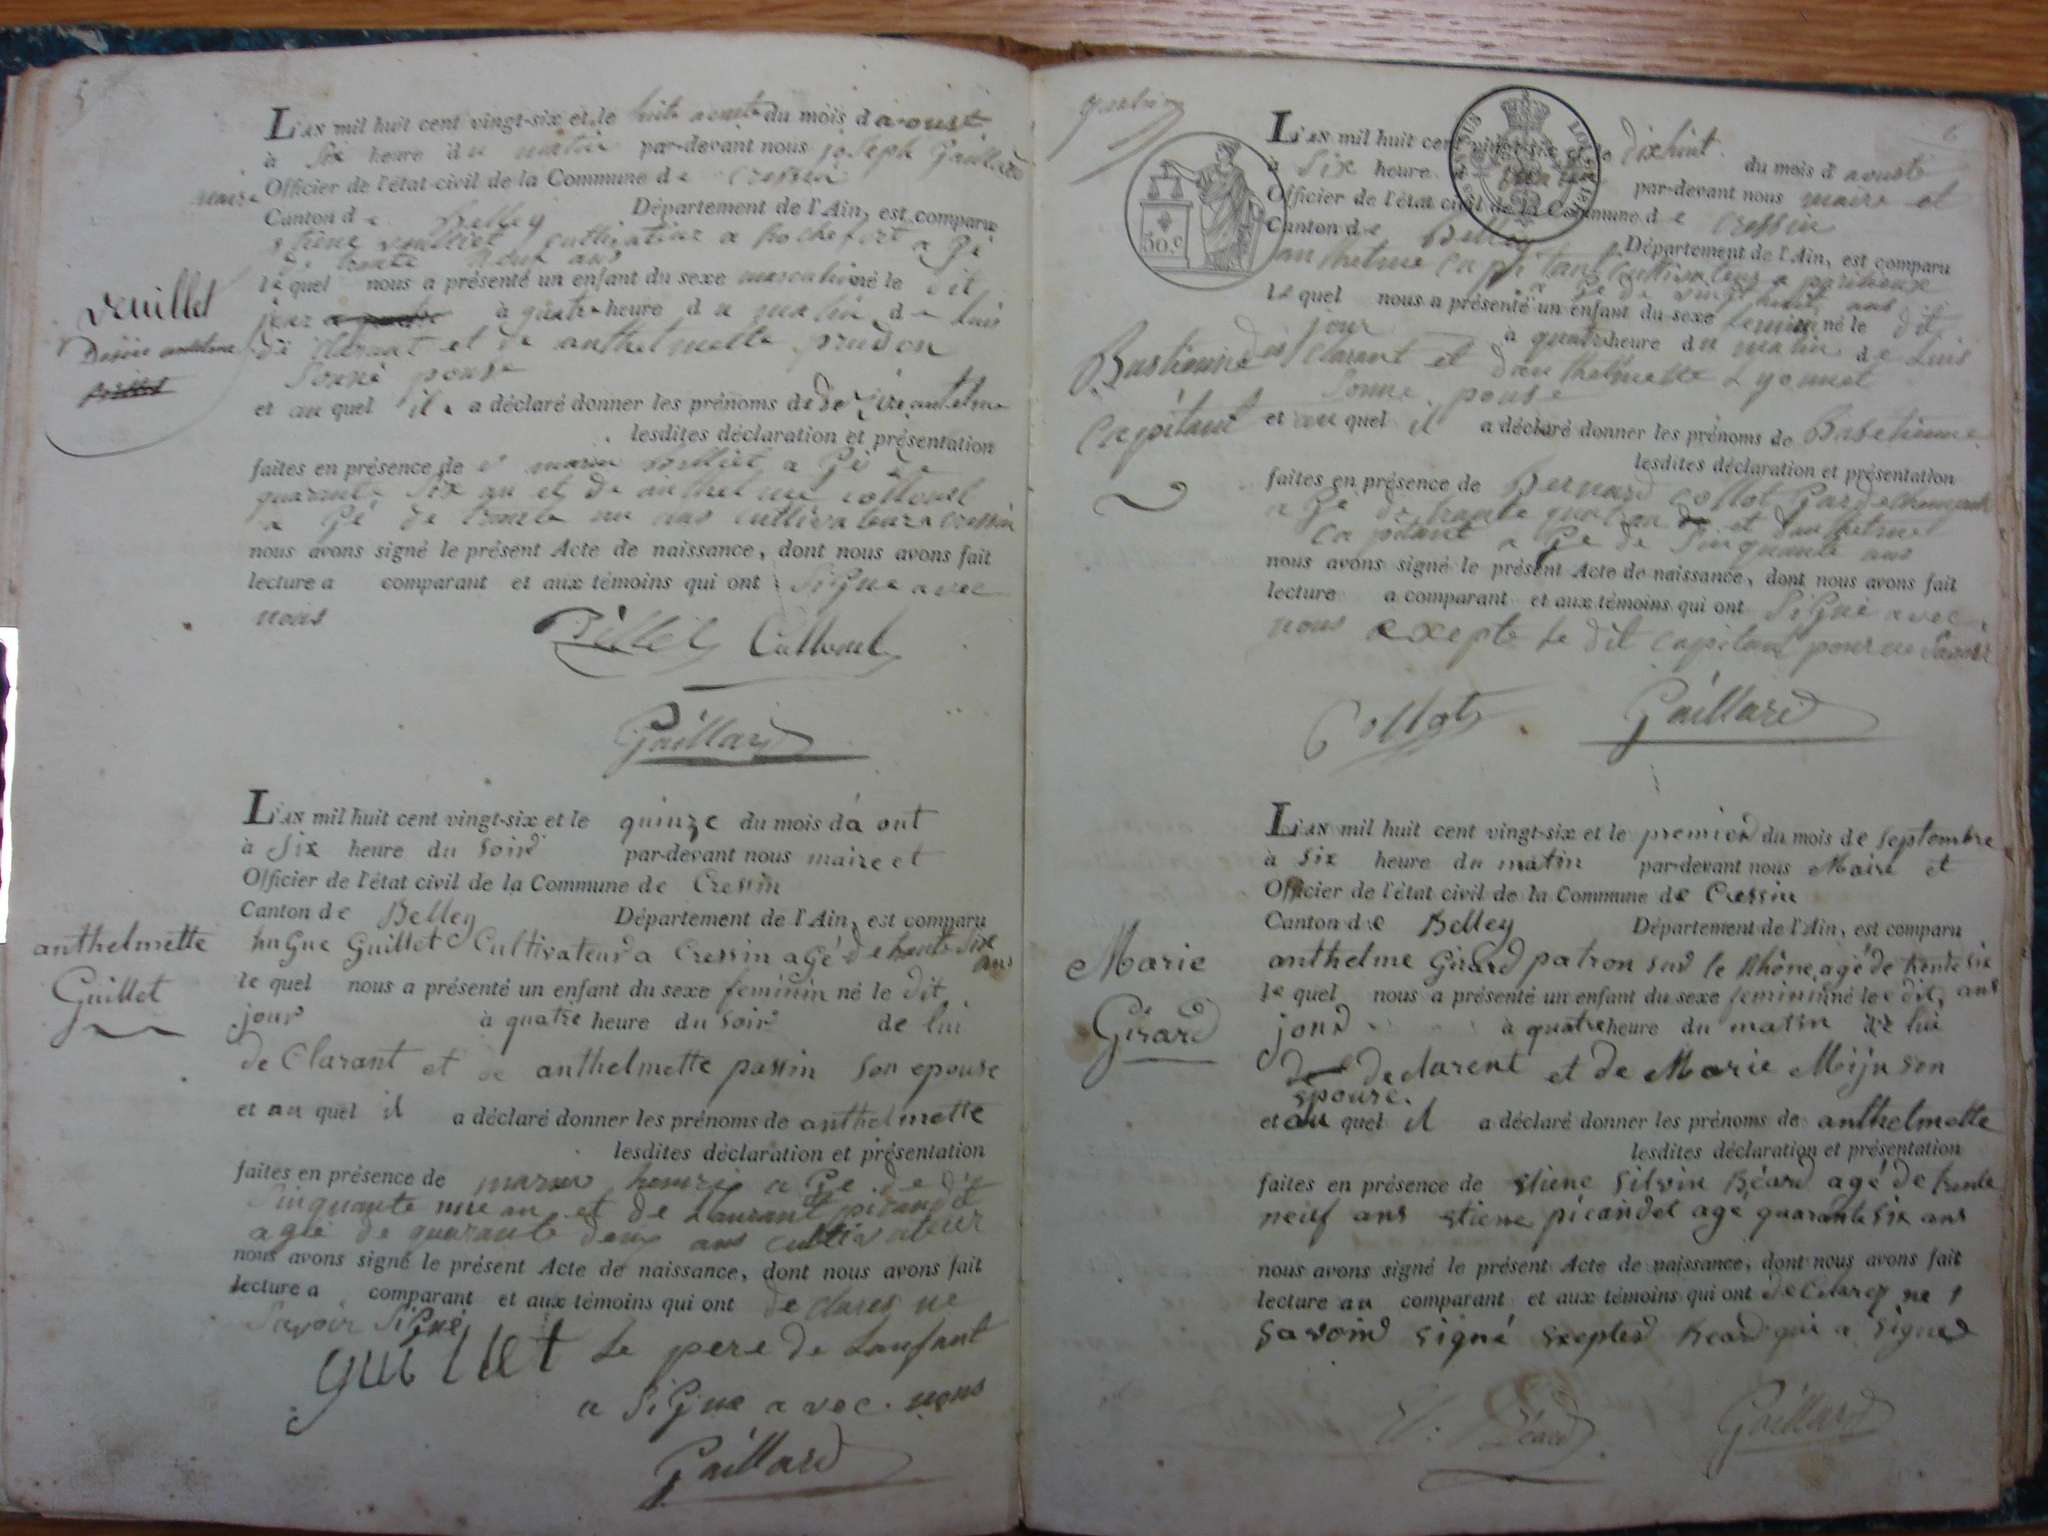 5
L'AN mil huit cent vingt-six et le huit aout du mois d'aoust
à Six heure du matin par-devant nous joseph Gaillard
maire Officier de l'état civil de la Commune de Cressin
Canton de Belley Département de l'Ain, est comparu
cultivateur a Rochefort a Gé
de trente ans
le quel nous a présenté un enfant du sexe masculin né le dit
jour à quatre heure du matin de lui
dé clarant et de anthelmette prudon
Sonné pouse
et au quel il a déclaré donner les prénoms de désiré antelme
lesdites déclaration et présentation
faites en présence de marin a Gé de
quarante Six an et de anthelme
a Gé de trente un ans cultivateur a Cressin
nous avons signé le présent Acte de naissance, dont nous avons fait
lecture a comparant et aux témoins qui ont Signe avec
nous
Veuillet
Désiré antelme
Callouet
Gaillard
L'AN mil huit cent vingt-six et le quinze du mois d'a out
à Six heure du soird par-devant nous maire et
Officier de l'état civil de la Commune de Cressin
Canton de Belley Département de l'Ain, est comparu
huGue Guillet Cultivateur a Cressin agé de trente Six
ans
le quel nous a présenté un enfant du sexe feminin né le dit
jour à quatre heure du soir de lui
de Clarant et de anthelmette passin son epouse
et au quel il a déclaré donner les prénoms de anthelmette
lesdites déclaration et présentation
faites en présence de marin henri a Gé de
Sinquante un an et de Laurant picandet
agie de quarante deux ans cultivateur
nous avons signé le présent Acte de naissance, dont nous avons fait
lecture a comparant et aux témoins qui ont de clarer ne
Savoir Signé
guillet Le pere de Lanfant
a SiGne avec nous
Gaillard
anthelmette
Guillet
6
30.c
L'AN mil huit cent vingt-six et le dixhuit du mois d'aouste
à Six heure du matin par-devant nous maire et
Officier de l'état civil de la Commune de Cressin
Canton de Belley Département de l'Ain, est comparu
anthelme Capitan Cultivateur a
a Gé de vingt huit ans
le quel nous a présenté un enfant du sexe feminin né le dit
jour à quatre heure du matin de Luis
dé Clarant et d'anthelmette Lyonnet
Sonne pouse
et au quel il a déclaré donner les prénoms de Bastienne
lesdites déclaration et présentation
faites en présence de Bernard Collot Garde
a Gé de trante quatre an et d'anthelme
Capitant a Gé de Sinquante ans
nous avons signé le présent Acte de naissance, dont nous avons fait
lecture a comparant et aux témoins qui ont SiGné avec
nous exepte Le dit Capitant pour ne Savoir
Bastienne
Capitant
Collot Gaillard
L'AN mil huit cent vingt-six et le premierd du mois de septembre
à six heure du matin par-devant nous Maire et
Officier de l'état civil de la Commune de Cressin
Canton de Belley Département de l'Ain, est comparu
anthelme Girard patron sur le Rhône, agé de trente six
ans
le quel nous a présenté un enfant du sexe feminin né le dit
jourd à quatre heure du matin de lui
de declarent et de Marie Mijn son
epouse.
et au quel il a déclaré donner les prénoms de anthelmette
lesdites déclaration et présentation
faites en présence de etiene Silvin Béard agé de trente
neuf ans etiene picandet age quarante six ans
nous avons signé le présent Acte de naissance, dont nous avons fait
lecture au comparant et aux témoins qui ont de Clarez ne
savoird signé exepterd Beard qui a signer
Marie
Girard
Béard Gaillard